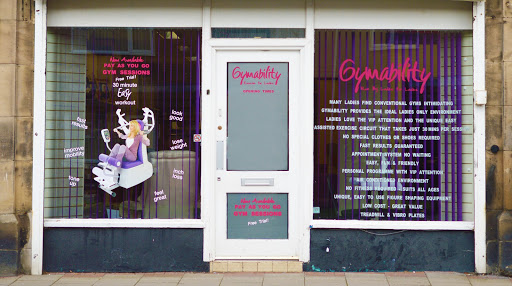 Now Available
PAY AS YOU GO
GYM SESSIONS
Free Trial!
30 minute
Easy
workout
fast
results
look
good
improve
mobility
lose
weight
tone
up
inch
loss
feel
great
Gymability
OPENING TIMES
Now Available
PAY AS YOU GO
GYM SESSIONS
Free Trial!
Gymability
MANY LADIES FIND CONVENTIONAL GYMS INTIMIDATING
GYMABILITY PROVIDES THE IDEAL LADIES ONLY ENVIRONMENT
LADIES LOVE THE VIP ATTENTION AND THE UNIQUE EASY
ASSISTED EXERCISE CIRCUIT THAT TAKES JUST 30 MINS PER SESS
NO SPECIAL CLOTHES OR SHOES REQUIRED
FAST RESULTS GUARANTEED
APPOINTMENT SYSTEM NO WAITING
EASY, FUN & FRIENDLY
PERSONAL PROGRAMME WITH VIP ATTENTION
AIR CONDITIONED ENVIRONMENT
NO FITNESS REQUIRED - SUITS ALL AGES
UNIQUE, EASY TO USE FIGURE SHAPING EQUIPMENT
LOW COST - GREAT VALUE
TREADMILL & VIBRO PLATES